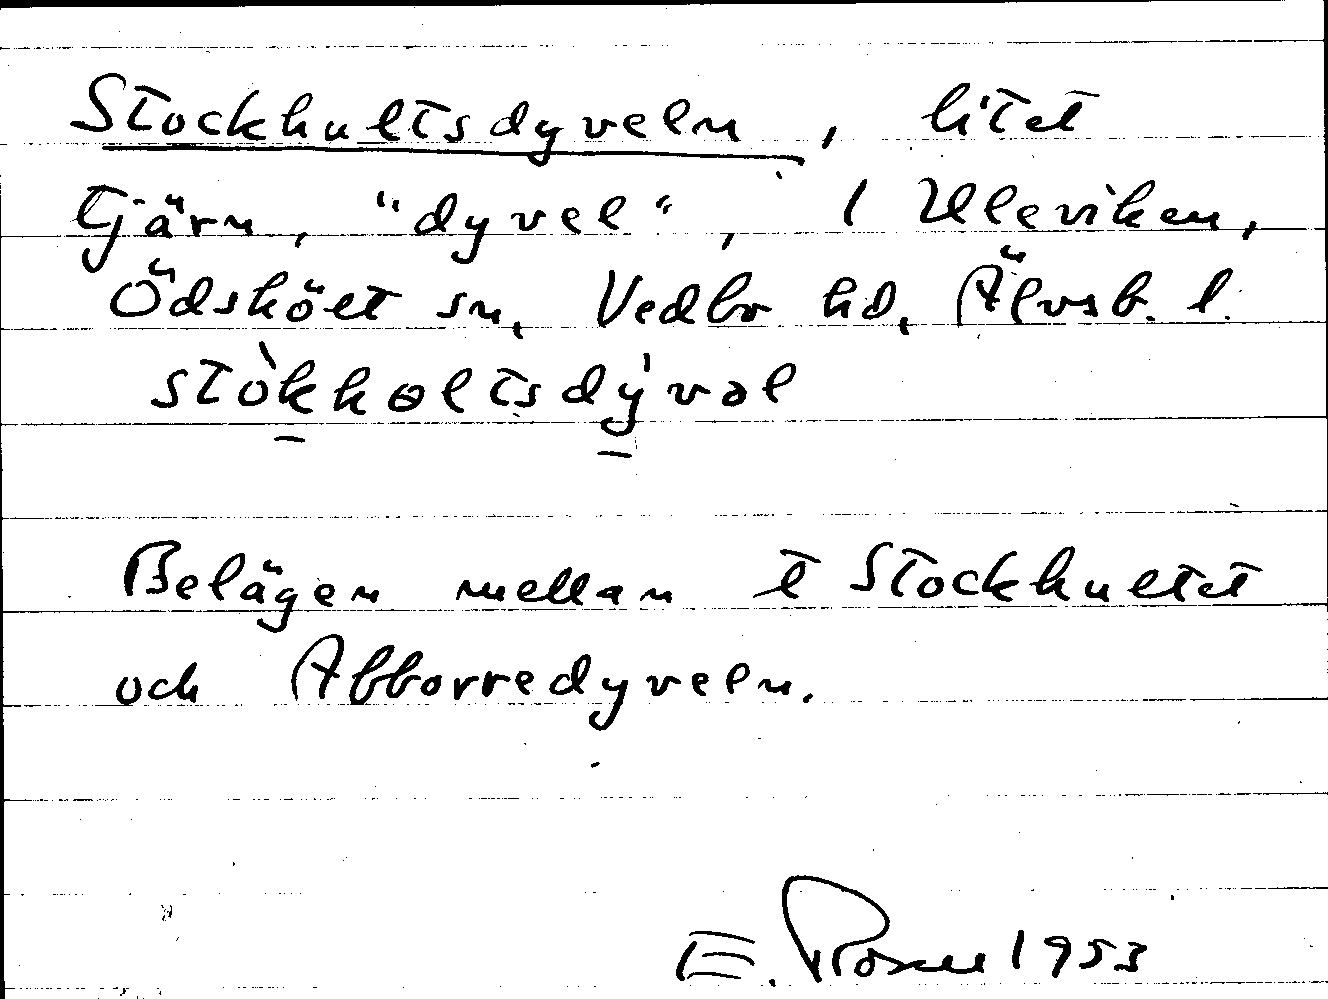 Stockhultsdyveln, litet
tjärn, "dyvel", i Ulleviken,
Ödsköet sn, Vedbo hd, Älvsb. l.
stòkhɵltsdývəl
Belägen mellan t Stockhultet
och Abborredyveln.
E. Rosell 1953